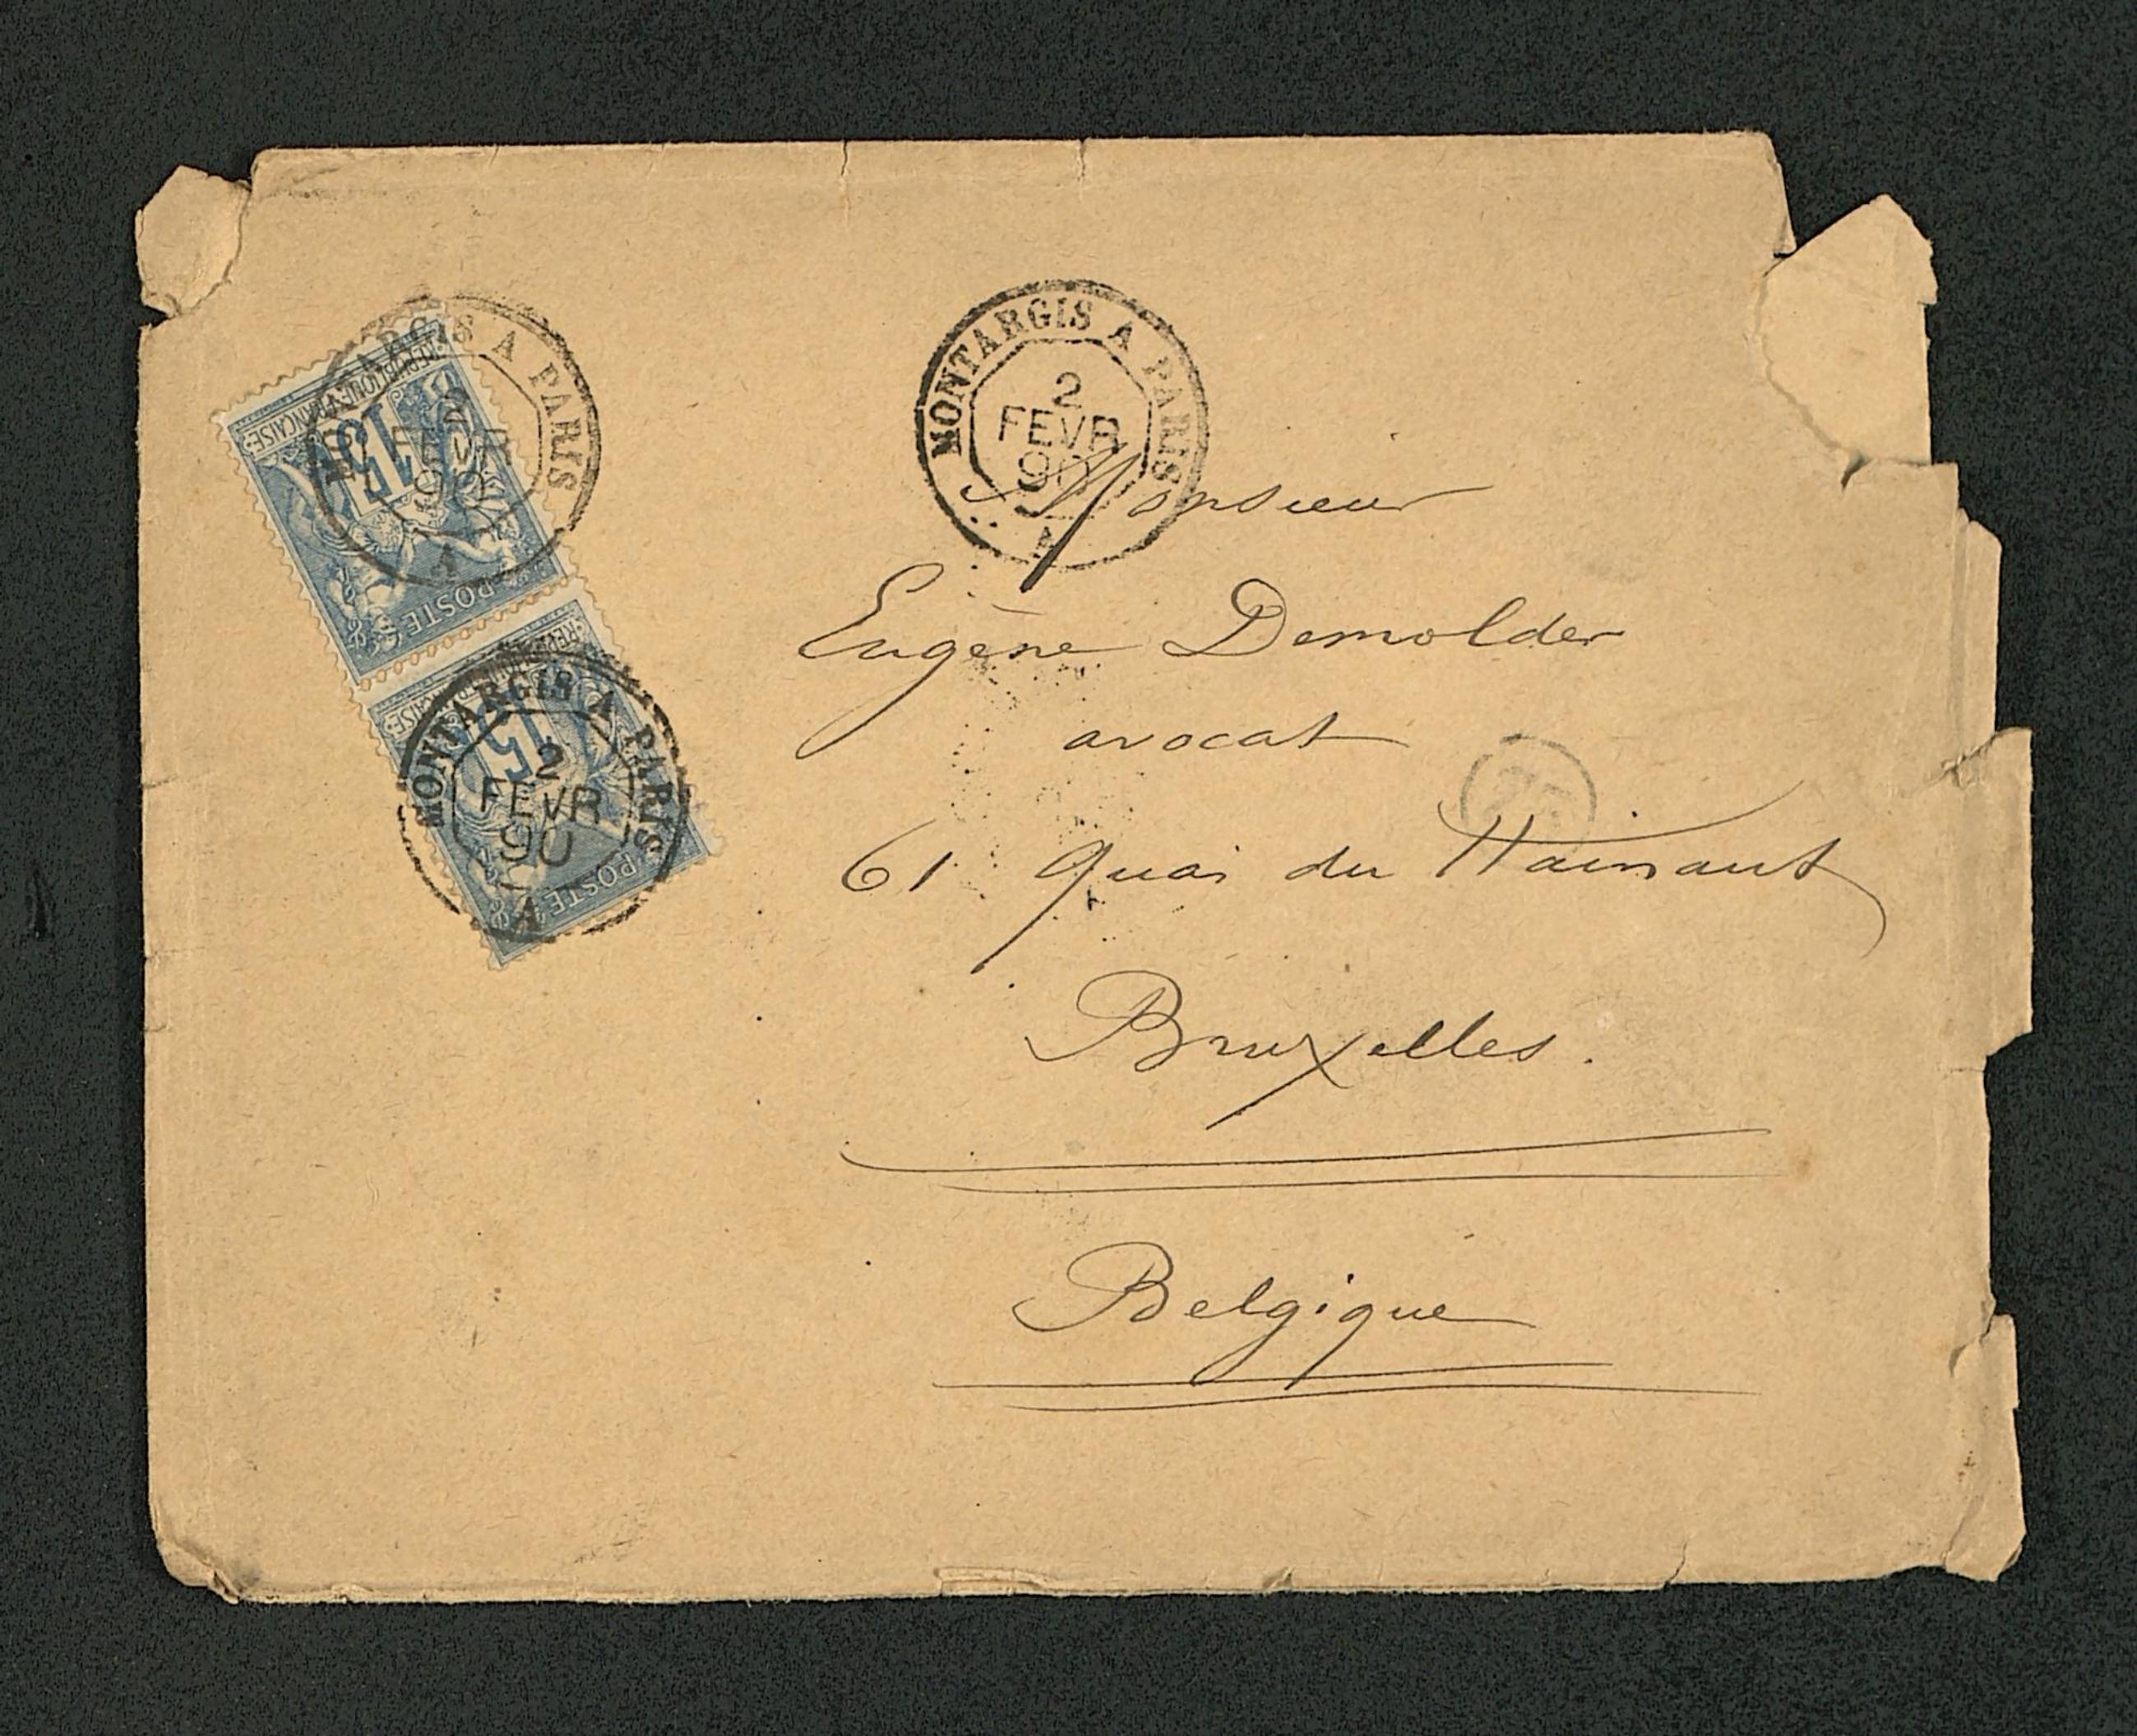 MONTARGIS A PARIS
2
FEVR
90
A
MONTARGIS A PARIS
2
FEVR
90
A
REPUBLIQUE FRANÇAISE
15
POSTE
MONTARGIS A PARIS
2
FEVR
90
A
15
POSTE
Monsieur
Eugène Demolder
avocat
61 Quai du Hainaut
Bruxelles.
Belgique